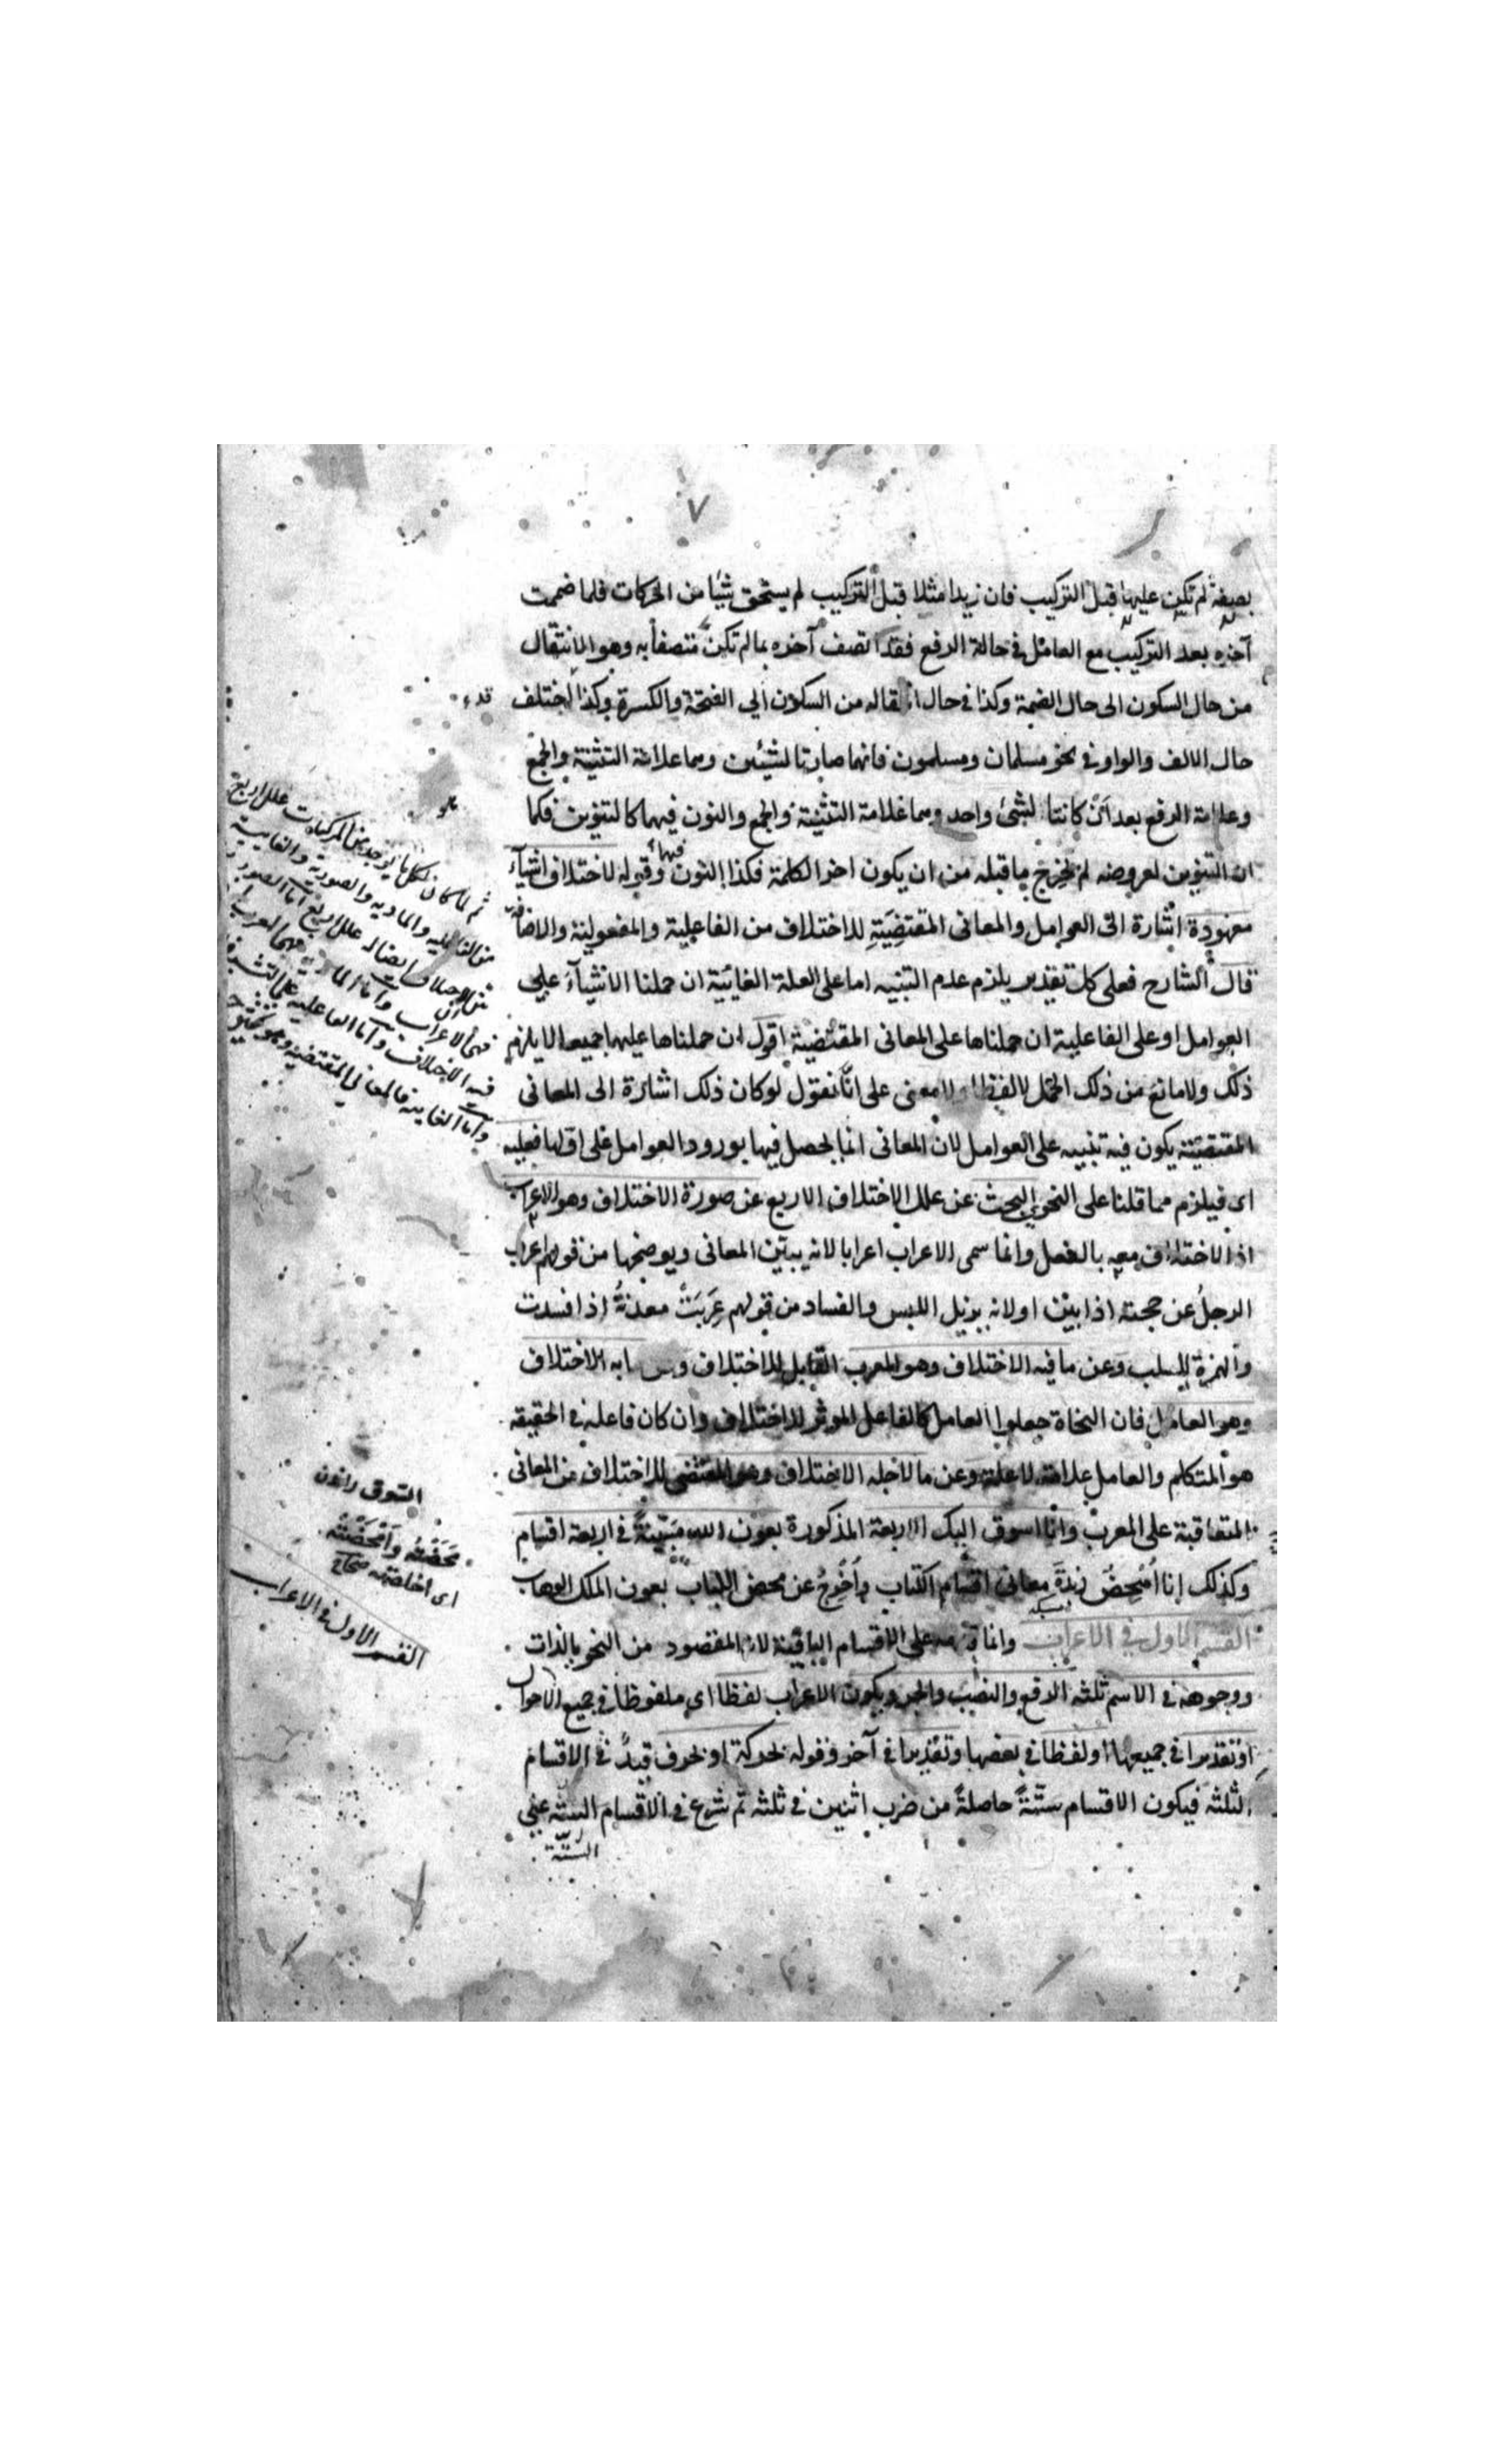 ٧
بصفة لم تكن عليها قبل التركيب فان زيدا مثلا قبل التركيب لم يستحق شيئا من الحركات فلما ضممت
آخره بعد التركيب مع العامل في حالة الرفع فقد اتصف آخره بما لم تكن متصفا به وهو الانتقال
من حال السكون الى حال الضمة وكذا في حال انتقاله من السكون الي الفتحة والكسرة وكذا اختلف
حال الالف والواو في نحو مسلمان ومسلمون فانهما صارتا لشيئين وهما علامة التثنية والجمع
وعلامة الرفع بعد ان كانتا لشئ واحد وهما علامة التثنية والجمع والنون فيهما كالتنوين فكما
ان التنوين لعروضه لم يخرج ما قبله من ان يكون اخر الكلمة فكذا النون فيهما وقوله لاختلاف اشيآء
معهودة اشارة الى العوامل والمعانى المقتضِيَةِ للاختلاف من الفاعلية والمفعولية والاضافة
قال الشارح فعلى كل تقدير يلزم عدم التنبيه اما على العلة الغائية ان حملنا الاشيآء علي
العوامل او على الفاعلية ان حملناها على المعانى المقتضية اقول ان حملناها عليهما جميعا لا يلزم
ذلك ولا مانع من ذلك الحمل لا لفظا ولا معنى على انّا نقول لو كان ذلك اشارة الى المعانى
المقتضية يكون فيه تنبيه على العوامل لان المعانى انما يحصل فيها بورود العوامل على اولها فعليه
اى فيلزم مما قلنا على النحوي البحث عن علل الاختلاف الاربع عن صورة الاختلاف وهو الاعراب
اذ الاختلاف معه بالفعل وانما سمى الاعراب اعرابا لانه يبين المعانى ويوضحها من قولهم اعرب
الرجلُ عن حجته اذا بيّن او لانه يزيل اللبس والفساد من قولهم عَرِبَتْ معدتهُ اذا فسدت
والهمزة للسلب وعن ما فيه الاختلاف وهو المعرب القابل للاختلاف وعن ما به الاختلاف
وهو العامل فان النحاة جعلوا العامل كالفاعل الموثر للاختلاف وان كان فاعله في الحقيقه
هو المتكلم والعامل علامة لا علة وعن ما لاجله الاختلاف وهو المقتضى للاختلاف من المعانى
المتعاقبة على المعرب وانا اسوق اليك الاربعة المذكورة بعون الله مبيّنةً في اربعة اقسام
وكذلك انا اُمْحِضُ زبدةَ معانى اقسام الكتاب واُخْرِجُ عن محض اللباب بعون الملك الوهاب
القسم الاول في الاعراب وانما قدمه على الاقسام الباقية لانه المقصود من النحو بالذات
ووجوهه في الاسم ثلثه الرفع والنصب والجر ويكون الاعراب لفظا اى ملفوظا في جميع الاحوال
او تقديرا في جميعها او لفظا في بعضها وتقديرا في آخر وقوله بحركة او بحرف قيدٌ في الاقسام
الثلثه فيكون الاقسام ستّةً حاصلةً من ضرب اثنين في ثلثه ثم شرع في الاقسام الستّه عني
الستّة
ثم لما كان لكل ما يوجد من المركبات علل اربع
من الفاعليه والماديه والصورية والغايية
السوق راندن
مَحَضْتُهُ وَاَمْحَضْتُهُ
اى اخلصته صحاح
القسم الاول في الاعراب